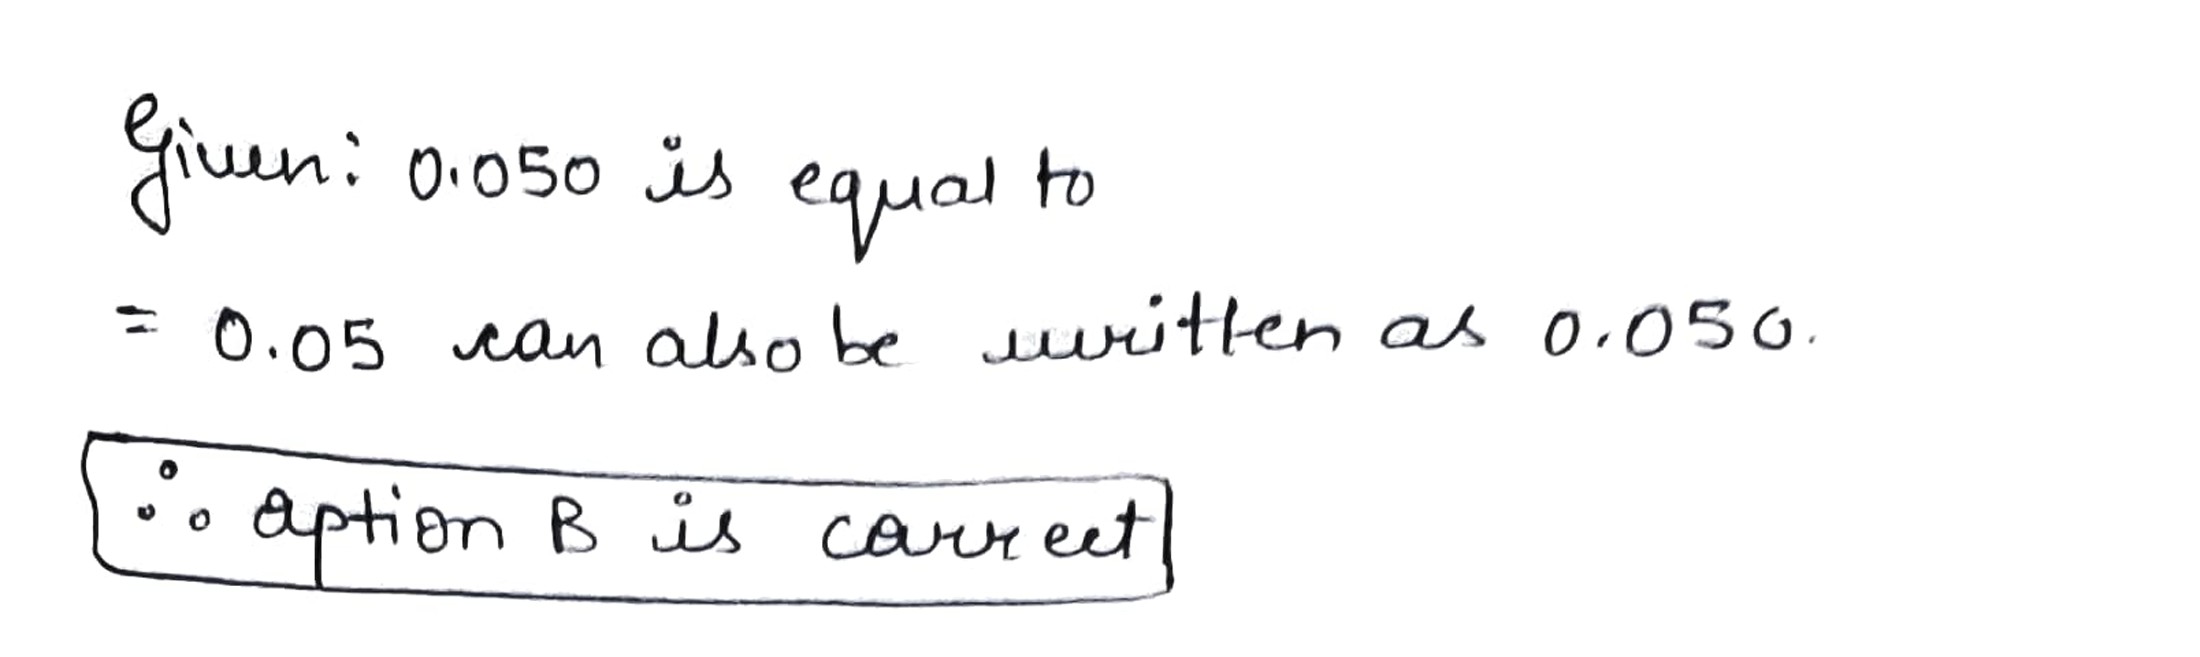 Given: 0.050 is equal to
= 0.05 can also be written as 0.050.
∴ option B is correct